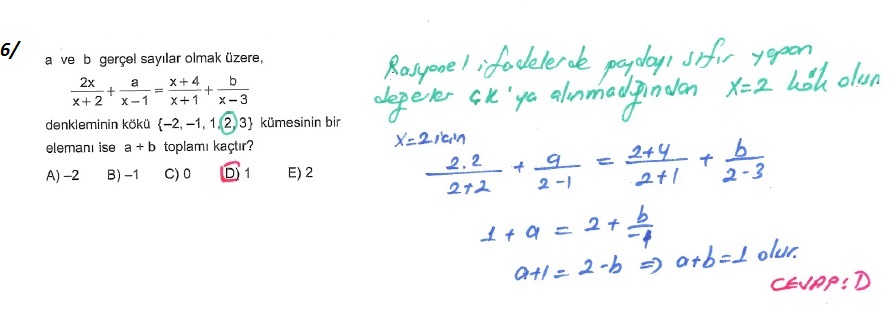 6/
a ve b gerçel sayılar olmak üzere,
2x/(x+2) + a/(x−1) = (x+4)/(x+1) + b/(x−3)
denkleminin kökü {−2, −1, 1, 2, 3} kümesinin bir
elemanı ise a + b toplamı kaçtır?
A) −2 B) −1 C) 0 D) 1 E) 2
Rasyonel ifadelerde paydayı sıfır yapan
değerler ÇK'ya alınmadığından x=2 kök olur
x=2 için
2.2/(2+2) + a/(2-1) = (2+4)/(2+1) + b/(2-3)
1 + a = 2 + b/-1
a+1 = 2-b ⇒ a+b=1 olur.
CEVAP: D